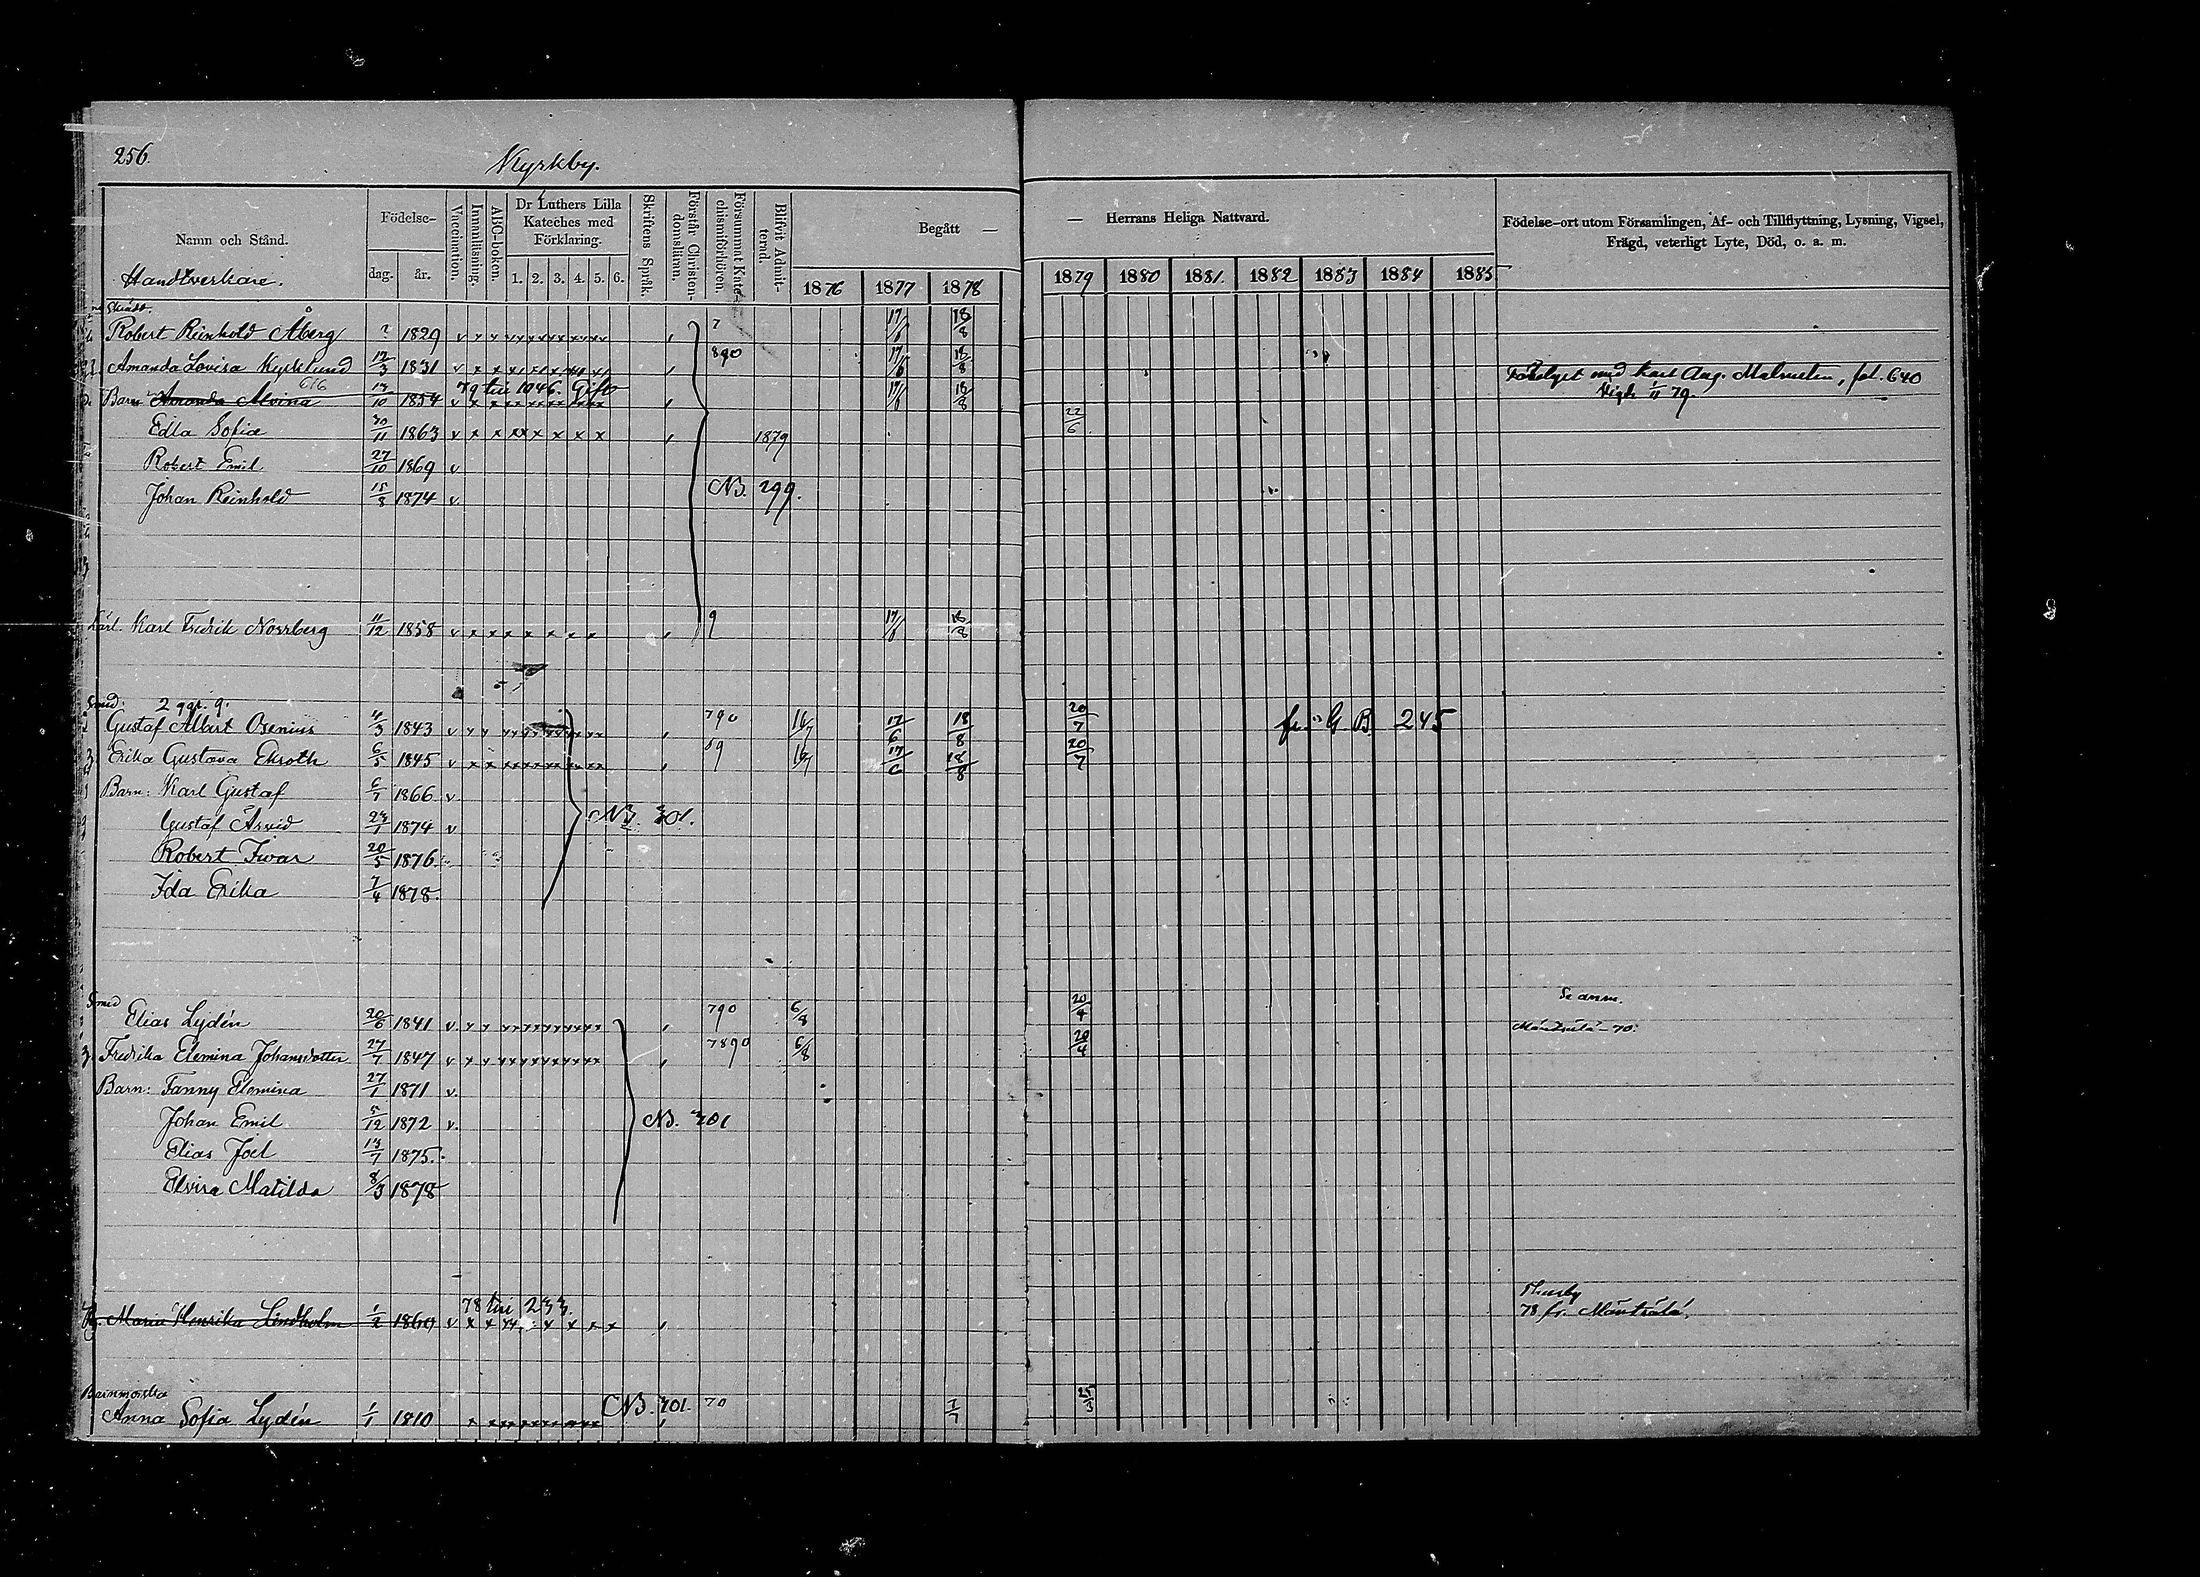 256.
Kyrkby.
Namn och Stånd.
Handtverkare.
Födelse-
dag. år.
Vaccination.
Innanläsning.
ABC-boken.
Dr Luthers Lilla
Kateches med
Förklaring.
1. 2. 3. 4. 5. 6.
Skriftens Språk.
Förstår Christen-
domslaran.
Försummat Kate-
chismiförhören.
Blifvit Admit-
terad.
Begått —
1876 1877 1878
— Herrans Heliga Nattvard.
1879 1880 1881. 1882 1883 1884 1885
Födelse-ort utom Församlingen, Af- och Tillflyttning, Lysning, Vigsel,
Frägd, veterligt Lyte, Död, o. a. m.
Robert Reinhold Åberg ? 1829 7 17/6 18/8
Amanda Lovisa Kyrklund 12/3 1831 890 17/6 18/8
616 79 till 1046. Gift
Barn: Amanda Alvina 13/10 1854 17/6 18/8 med Karl Aug. fol. 640
Vigde 1/11 79.
Edla Sofia 30/11 1863 1879 22/6
Robert Emil 27/10 1869
Johan Reinhold 15/8 1874 NB. 299.
Karl Fredrik Norrberg 11/12 1858 9 17/6 18/8
Smed. 2 ggr. g.
Gustaf Albert Osenius 11/3 1843 790 16/7 17/6 18/8 20/7 G B 245
Erika Gustava Ekroth 6/5 1845 89 16/7 17/6 18/8 20/7
Barn: Karl Gustaf 6/7 1866
Gustaf Arvid 23/1 1874 NB. 301.
Robert Ivar 20/5 1876.
Ida Erika 7/4 1878.
Smed Se anm.
Elias Lydén 20/6 1841 790 6/8 20/4 Mäntsälä 70.
Fredrika Elemina Johansdotter 27/7 1847 7890 6/8 20/4
Barn: Fanny Elemina 27/1 1871
Johan Emil 5/12 1872 NB. 301
Elias Joel 13/7 1875.
Elvira Matilda 8/3 1878
78 till 233.
Maria Henrika Lindholm 1/2 1860 78 fr. Mäntsälä.
Barnmorska
Anna Sofia Lydén 1/1 1810 NB. 301. 70 7/7 25/3